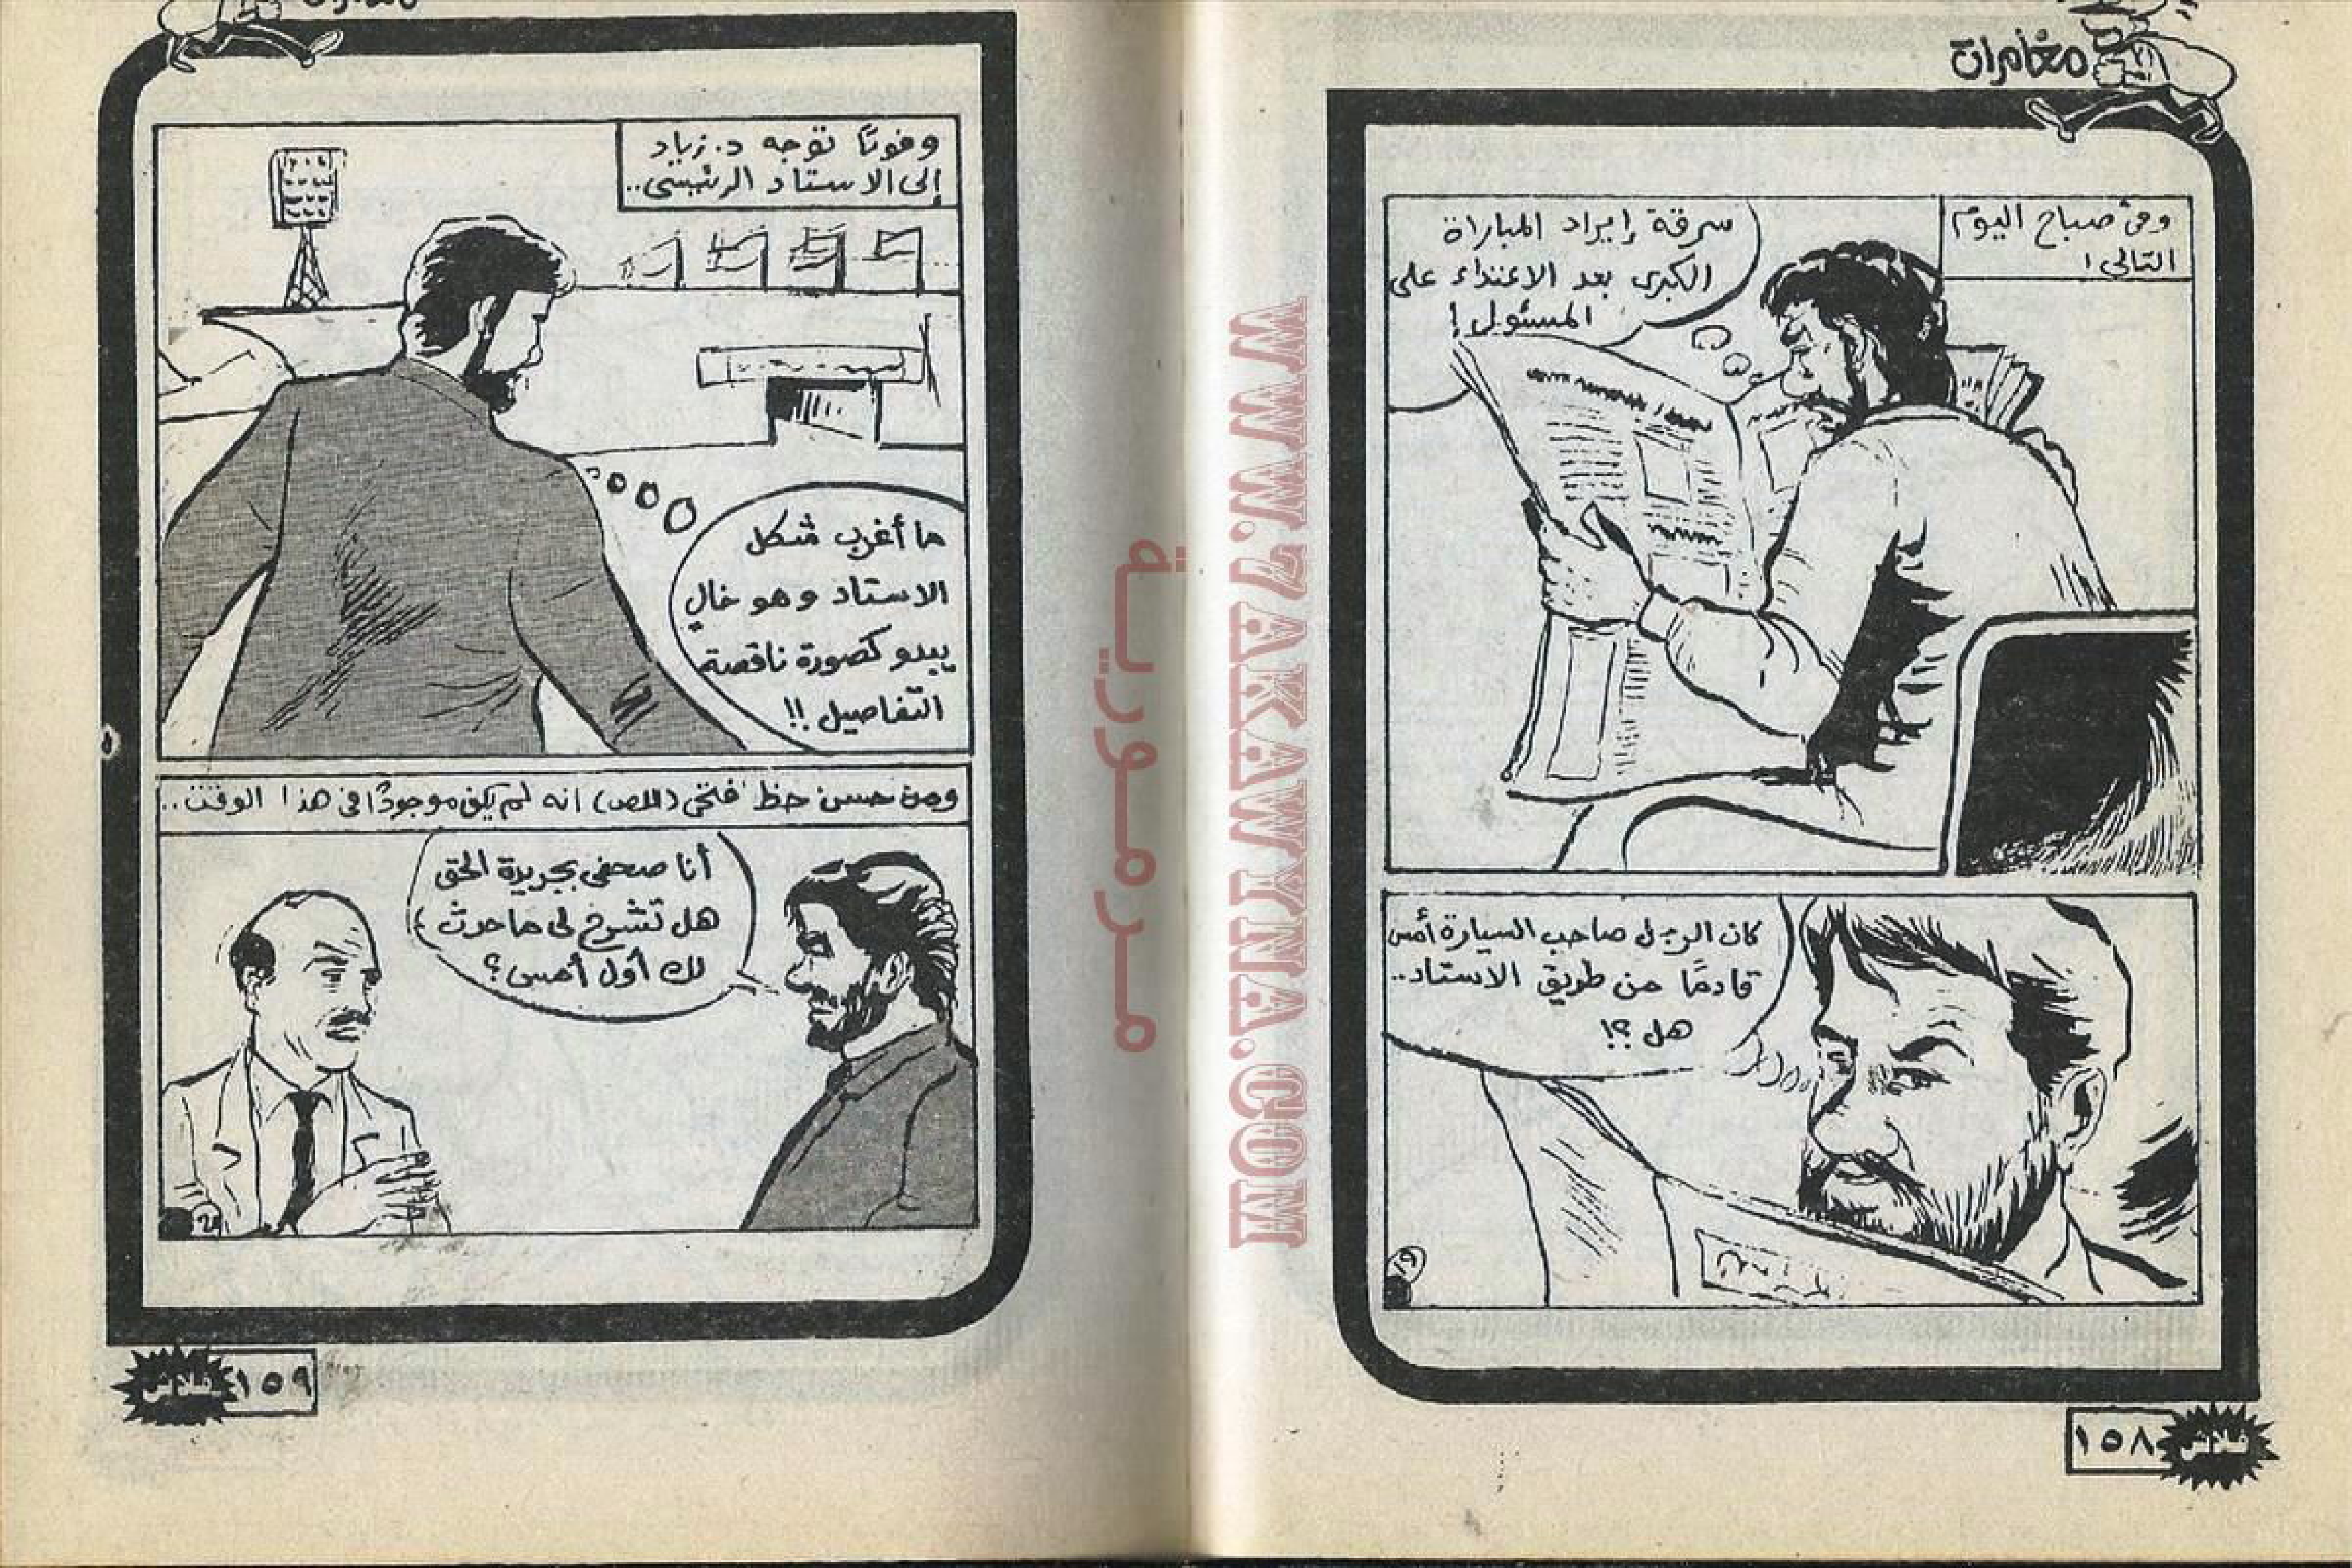 مغامرات
وفى صباح اليوم
التالى :
سرقة إيراد المباراة
الكبرى بعد الاعتداء على
المسئول !
كان الرجل صاحب السيارة أمس
قادمًا من طريق الاستاد..
هل ؟!
١٩
١٥٨
فلاش
وفورًا توجه د. زياد
إلى الاستاد الرئيسى..
ما أغرب شكل
الاستاد وهو خالٍ
يبدو كصورة ناقصة
التفاصيل !!
ومن حسن حظ فتحى (اللص) انه لم يكن موجودًا فى هذا الوقت..
أنا صحفى بجريدة الحق
هل تشرح لى ما حدث
لك أول أمس ؟
١٥٩
فلاش
مرمورية
WWW.7AKAWYNA.COM